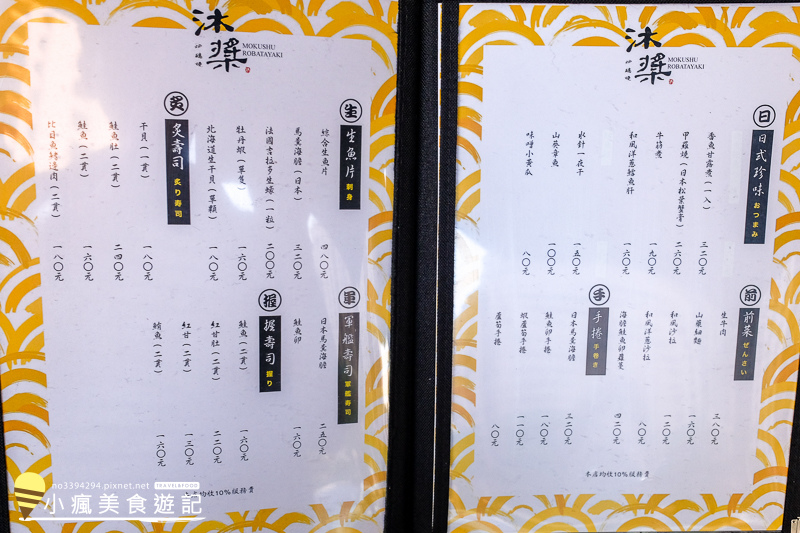 沐槳
炉端燒
MOKUSHU
ROBATAYAKI
生
生魚片 刺身
綜合生魚片 四八〇元
馬糞海膽（日本） 三二〇元
法國吉拉多生蠔（一粒） 二〇〇元
牡丹蝦（單隻） 一六〇元
北海道生干貝（單顆） 一八〇元
炙
炙壽司 炙り寿司
干貝（一貫） 一八〇元
鮭魚肚（二貫） 二四〇元
鮭魚（二貫） 一六〇元
比目魚鰭邊肉（二貫） 一八〇元
軍
軍艦壽司 軍艦寿司
日本馬糞海膽 二五〇元
鮭魚卵 一六〇元
握
握壽司 握り
鮭魚（二貫） 一六〇元
紅甘肚（二貫） 二二〇元
紅甘（二貫） 一三〇元
鮪魚（二貫） 一六〇元
本店均收10%服務費
沐槳
炉端燒
MOKUSHU
ROBATAYAKI
日
日式珍味 おつまみ
香魚甘露煮（一入） 三二〇元
甲羅燒（日本松葉蟹膏） 二六〇元
牛筋煮 一九〇元
和風洋蔥鱈魚肝 一六〇元
水針一夜干 一五〇元
山葵章魚 一〇〇元
味噌小黃瓜 八〇元
前
前菜 ぜんさい
生牛肉 三八〇元
山藥細麵 一六〇元
和風沙拉 一二〇元
和風洋蔥沙拉 八〇元
海膽鮭魚卵蘿蔓 四二〇元
手
手捲 手巻き
日本馬糞海膽 三二〇元
鮭魚卵手捲 一八〇元
蝦蘆筍手捲 一一〇元
蘆筍手捲 八〇元
本店均收10%服務費
no3394294.pixnet.net
TRAVEL&FOOD
小瘋美食遊記